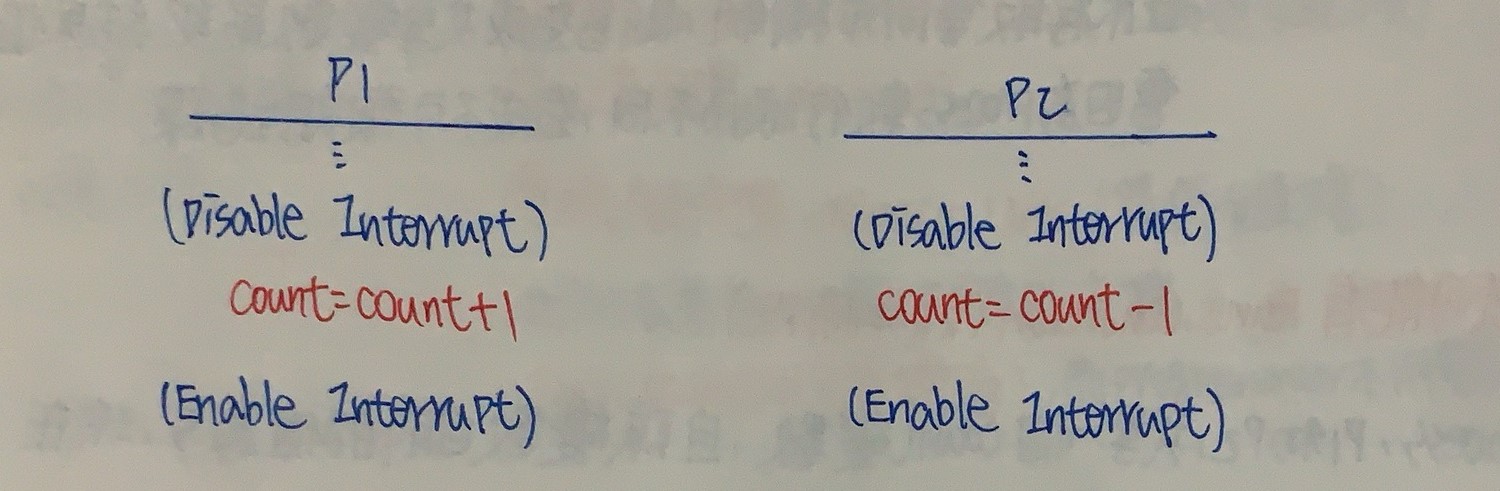 P1
⋮
(Disable Interrupt)
count=count+1
(Enable Interrupt)
P2
⋮
(Disable Interrupt)
count=count-1
(Enable Interrupt)